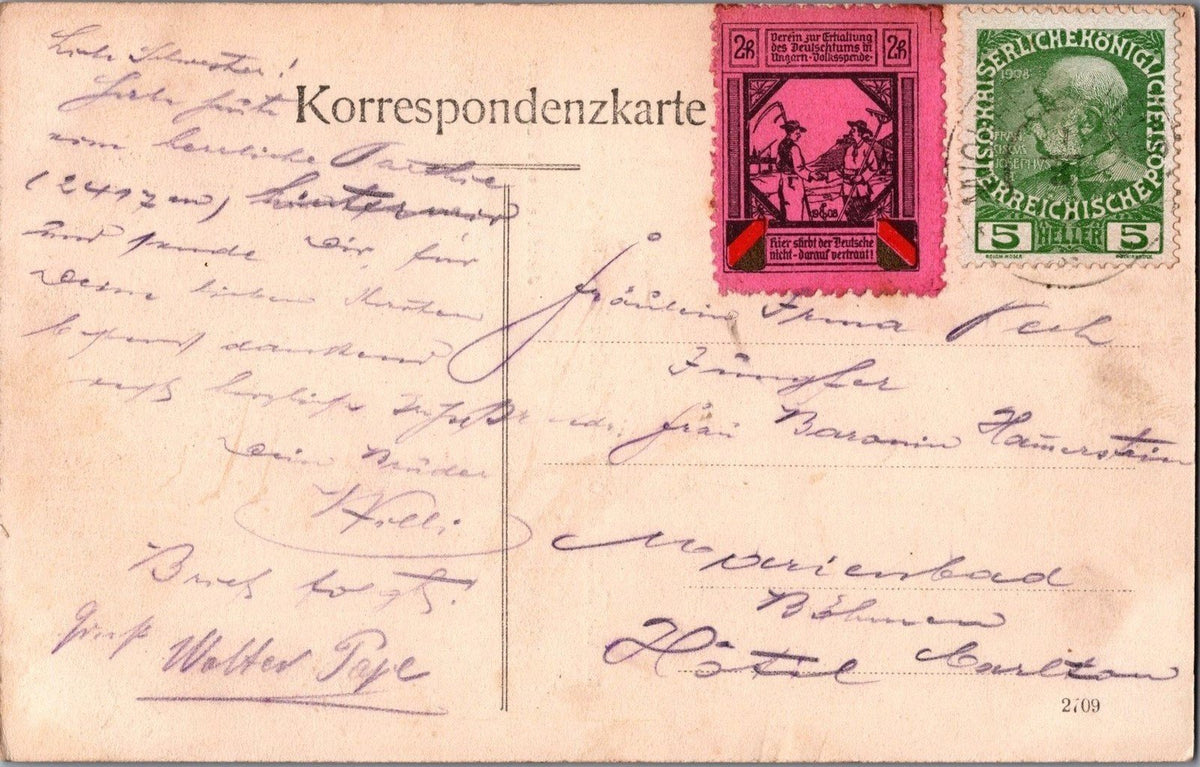 Korrespondenzkarte
2h
Verein zur Erhaltung
des Deutschtums in
Ungarn-Volksspende-
2h
1908
Hier stirbt der Deutsche
nicht-darauf vertraut!
KAISERLICHE KÖNIGLICHE ÖSTERREICHISCHE POST
1908
FRAN
CISCVS
JOSEPHVS
5 HELLER 5
Liebe Schwester!
Habe heute
eine herrliche
(2417 m) hinter mir
und sende Dir für
Deine lieben Karten
bestens dankend
recht herzliche
Dein Bruder
Willi
Brief folgt!
Gruß
Walter
Fräulein Irma
Jungfer
bei Frau Baronin Hamerstein
Marienbad
Böhmen
Hôtel Carlton
2709